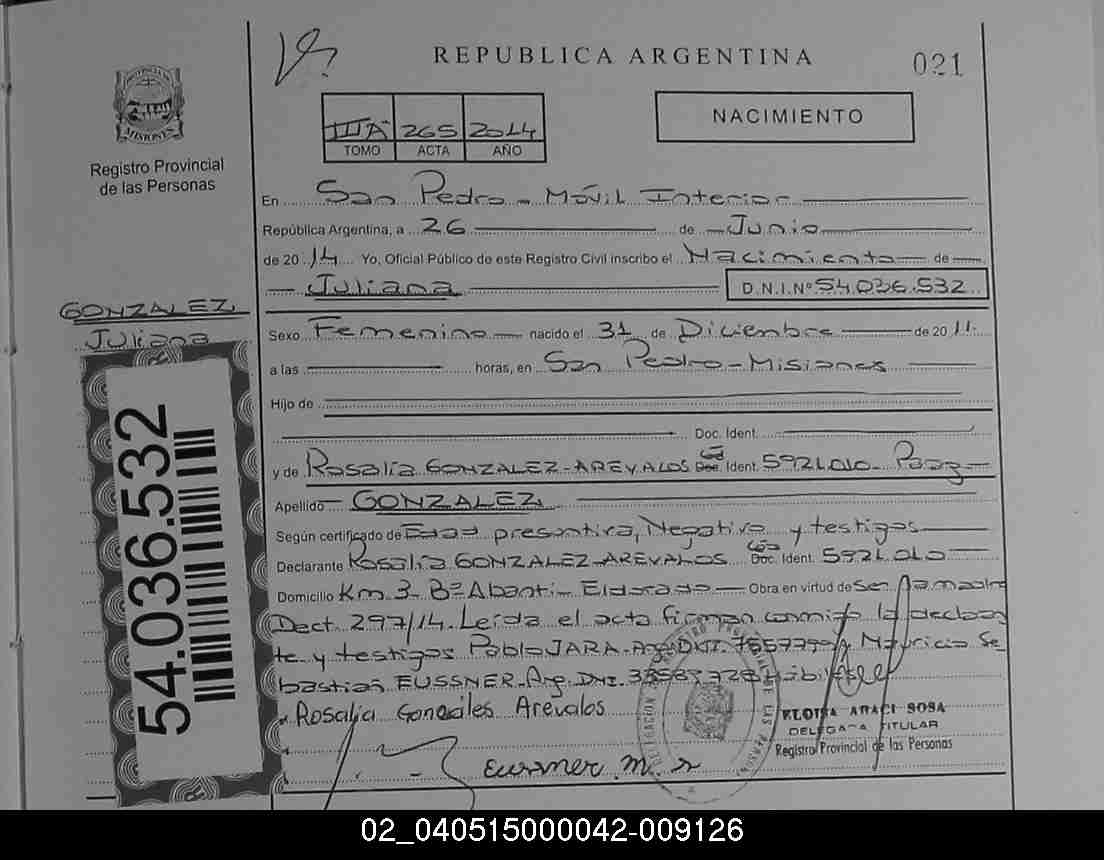 REPUBLICA ARGENTINA
021
PROVINCIA DE
MISIONES
Registro Provincial
de las Personas
III A 265 2014
TOMO ACTA AÑO
NACIMIENTO
En San Pedro - Móvil Interior
República Argentina, a 26 de Junio
de 2014 Yo, Oficial Público de este Registro Civil inscribo el Nacimiento de
Juliana D.N.I.Nº 54.036.532
GONZALEZ
Juliana
Sexo Femenino nacido el 31 de Diciembre de 2011.
a las horas, en San Pedro - Misiones
Hijo de
Doc. Ident.
y de Rosalía GONZALEZ-AREVALOS Céd Doc. Ident. 5921.010- Paag
Apellido GONZALEZ
Según certificado de Edad presentiva, Negativa y testigos
Declarante Rosalía GONZALEZ AREVALOS Céd Doc. Ident. 5921.010
Domicilio Km 3 - Bº Abanti - Eldorado - Obra en virtud de Ser la madre
Dect. 297/14. Leída el acta firman conmigo la declaran
te y testigos Pablo JARA - Arg DNI. y Mauricio Se
bastian EUSSNER. Arg. DNI.
Rosalia Gonzáles Arévalos
Eussner. m. s
ELOISA ARACI SOSA
DELEGADA TITULAR
Registro Provincial de las Personas
54.036.532
02_040515000042-009126